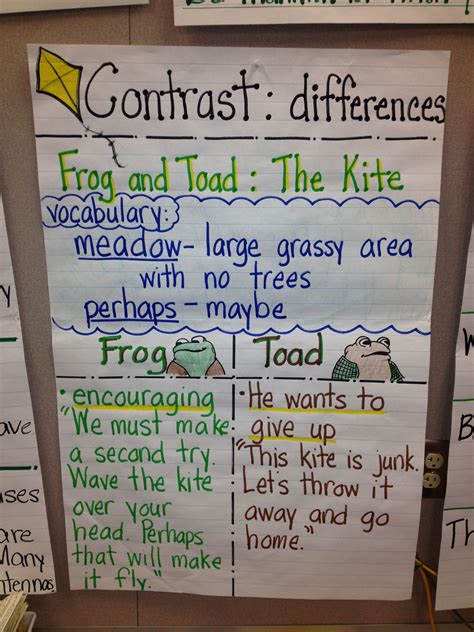 Contrast: differences
Frog and Toad: The Kite
vocabulary:
meadow - large grassy area
with no trees
perhaps - maybe
Frog
• encouraging
"We must make
a second try.
Wave the kite
over your
head. Perhaps
that will make
it fly."
Toad
• He wants to
give up
"This kite is junk.
Let's throw it
away and go
home."
ave
ses
are
Many
ntennas
W
B
Th